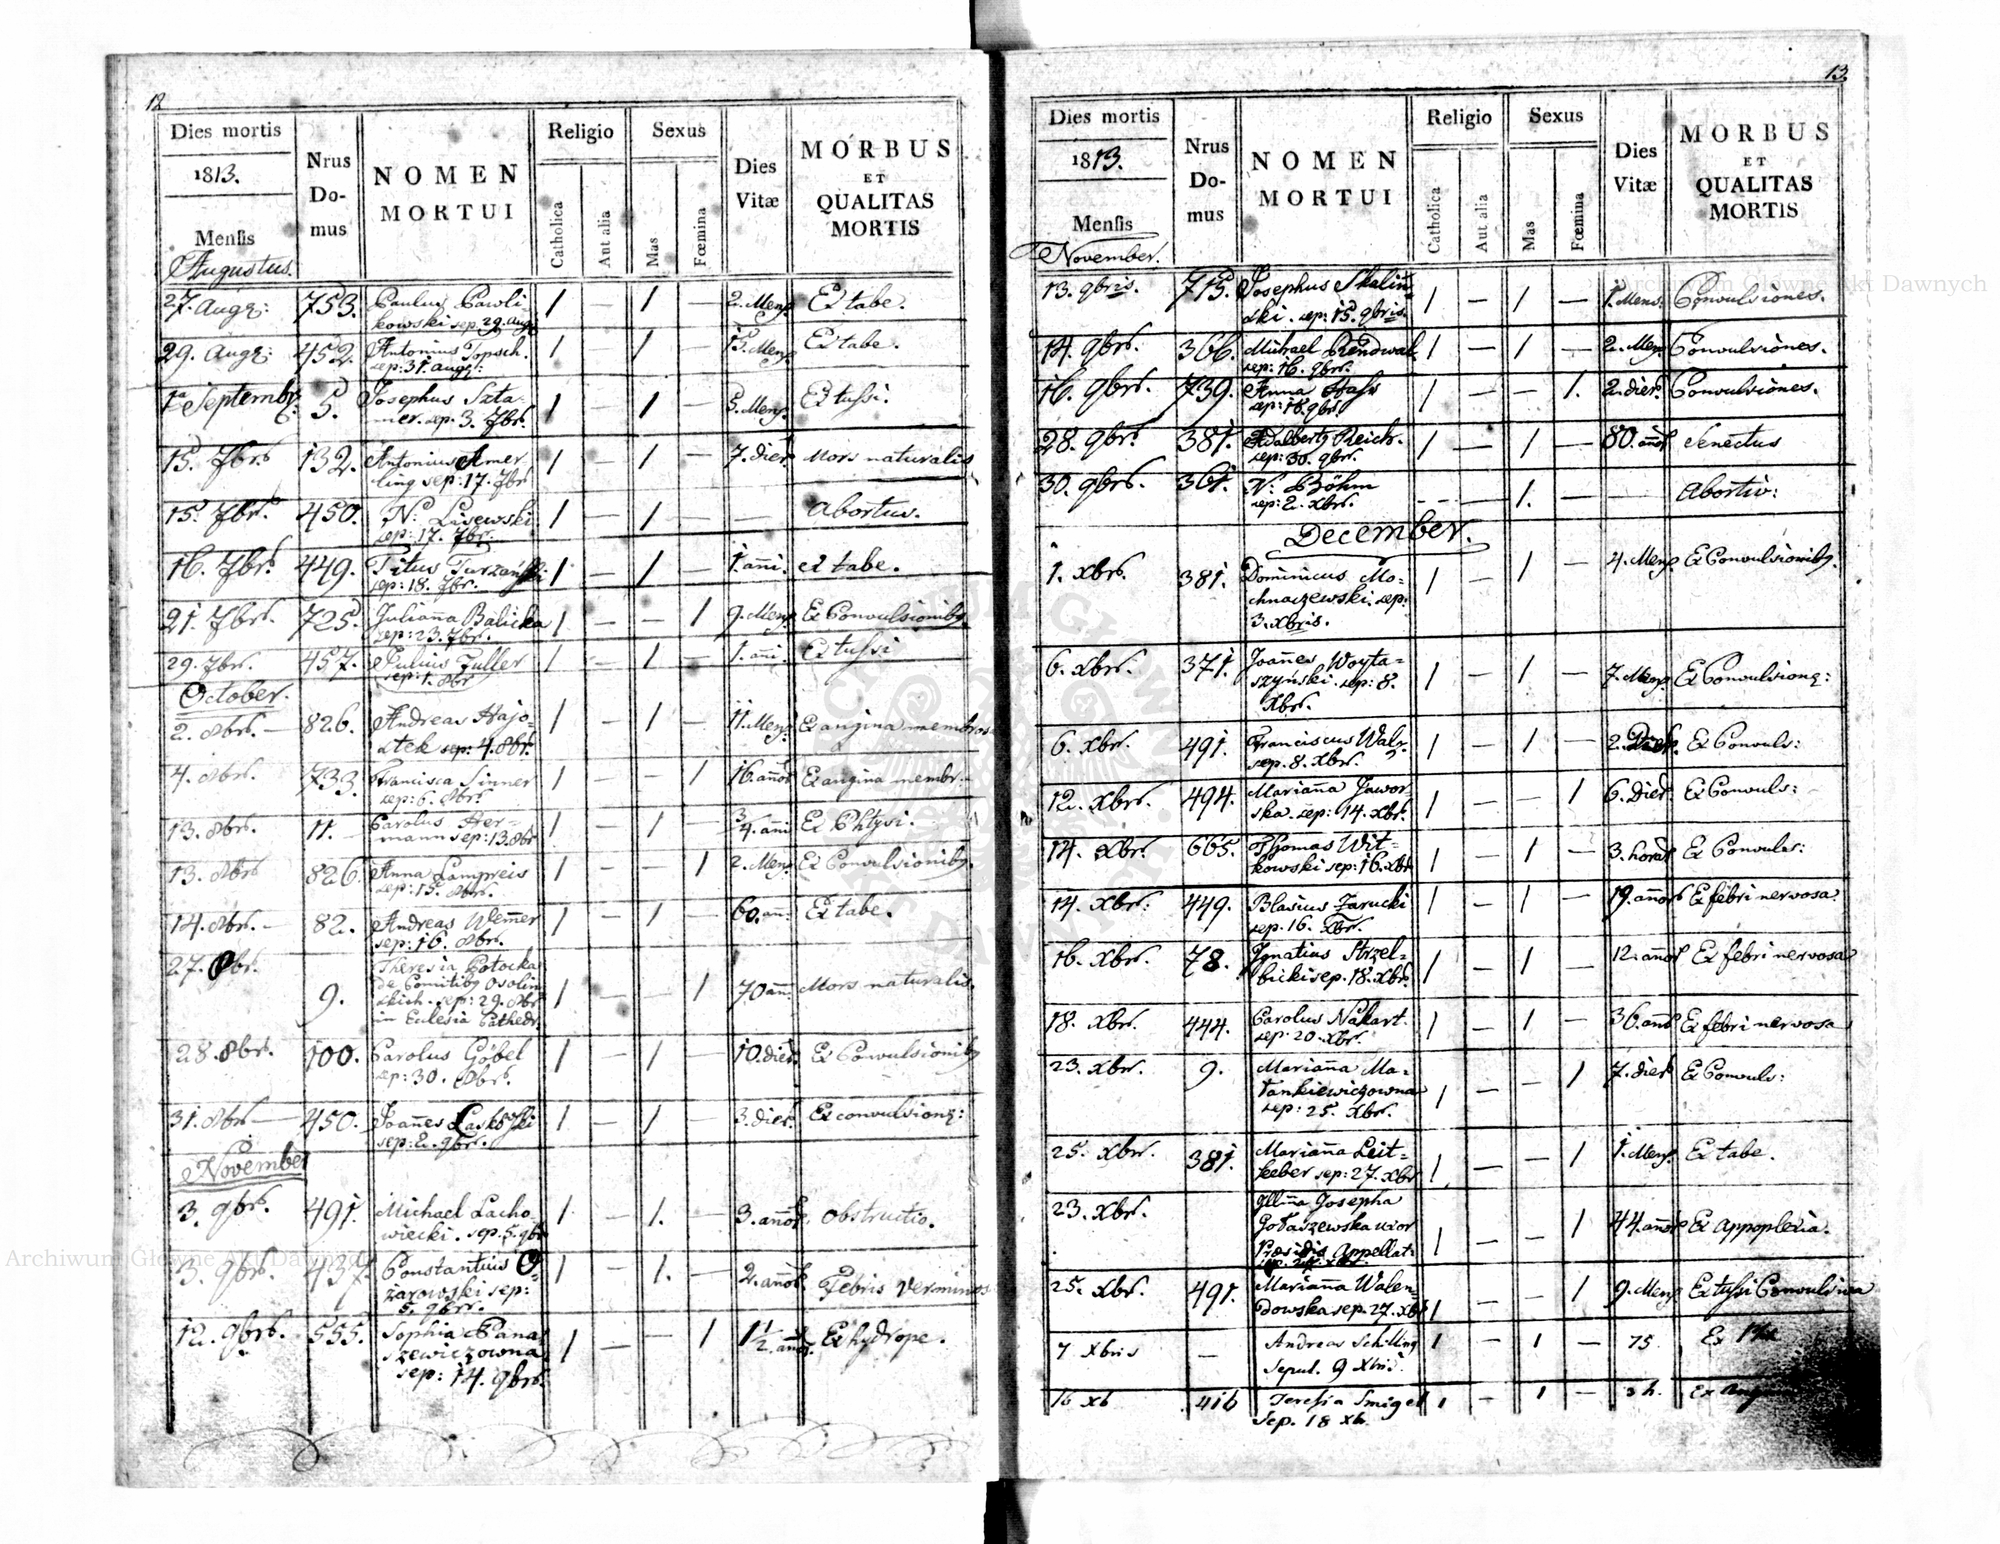 12
Dies mortis
1813.
Mensis
Augustus.
Nrus
Do-
mus
NOMEN
MORTUI
Religio
Catholica
Aut alia
Sexus
Mas
Fœmina
Dies
Vitæ
MORBUS
ET
QUALITAS
MORTIS
27. Aug: 753. Paulus Pawli- 1 – 1 2. Mens. Ex tabe.
kowski sep. 29. Aug.
29. Aug: 452. Antonius Topsch. 1 – 1 – 13. Mens. Ex tabe.
sep: 31. Aug:
1a Septembr. 5. Josephus Szta- 1 1 – 5. Mens. Ex tussi.
mer. sep. 3. 7br.
15. 7bris 132. Antonius Amer 1 – 1 – 7. dier. Mors naturalis
ling sep: 17. 7br
15. 7br. 450. N: Lisewski 1 – 1 – – Abortus.
sep: 17. 7br.
16. 7br. 449. Titus Turzański 1 – 1 – 1. anni. ex tabe.
sep: 18. 7br.
21. 7br. 725. Julianna Balicka 1 – – 1 9. Mens. Ex Convulsionibq.
sep: 23. 7br.
29. 7br. 457. Julius Fuller 1 – 1 – 1. anni Ex tussi
sep: 1. 8br
October.
2. 8br. – 826. Andreas Hajo- 1 – 1 – 11. Mens. Ex angina membrosa
stek sep: 4. 8br.
4. 8br. 733. Francisca Sinner 1 – – 1 16. annor Ex angina membr.
sep: 6. 8br.
13. 8br. 11. Carolus Her- 1 – 1 – 3/4. anni Ex Phtysi.
mann sep: 13. 8br
13. 8br 826. Anna Lampreis 1 – – 1 2. Mens. Ex Convulsionibq.
sep: 15. 8br.
14. 8br. – 82. Andreas Wemer 1 – 1 – 60. an: Ex tabe.
sep: 16. 8br.
27. 8br. 9. Theresia Potocka 1 – – 1 70 an: Mors naturalis.
de Comitibq Osolin
skich. sep: 29. 8br
in Eclesia Cathedr.
28. 8br. 100. Carolus Göbel 1 – 1 – 10. dier Ex Convulsionibq
sep: 30. 8br.
31. 8br – 450. Joannes Laskowski 1 – 1 – 3. dier. Ex convulsionq:
sep: 2. 9br.
November
3. 9br. 491. Michael Lacho- 1 – 1. – 3. annor. Obstructio.
wiecki. sep. 5. 9br
3. 9br. 437. Constantius O- 1 – 1. – 2. annor. Febris verminos
zarowski sep:
5. 9br.
12. 9br. 555. Sophia Pana 1 – – 1 1 1/2. annor. Ex hydrope.
szewiczowna
sep: 14. 9br.
13
Dies mortis
1813.
Mensis
November.
Nrus
Do-
mus
NOMEN
MORTUI
Religio
Catholica
Aut alia
Sexus
Mas
Fœmina
Dies
Vitæ
MORBUS
ET
QUALITAS
MORTIS
13. 9bris. 715. Josephus Skaliń- 1 – 1 – 1. Mens. Convulsiones.
ski. sep: 15. 9bris.
14. 9br. 366. Michael Rendwal 1 – 1 – 2. Mens. Convulsiones.
sep: 16. 9br.
16. 9br. 739. Anna Hass 1 – – 1. 2. dier. Convulsiones.
sep: 18. 9br.
28. 9br. 381. Adalbertq Reich. 1 – 1 – 80. annor Senectus
sep: 30. 9br.
30. 9br. 361. N: Böhm – – 1. – – Abortiv:
sep: 2. Xbr.
December.
1. Xbr. 381. Dominicus Mo- 1 – 1 – 4. Mens. Ex Convulsionibq.
chnaczewski. sep:
3. Xbris.
6. Xbr. 371. Joannes Woyta- 1 – 1 – 7. Mens. Ex Convulsionq:
szyński. sep: 8.
Xbr.
6. Xbr. 491. Franciscus Walz. 1 – 1 – 2. Dier. Ex Convuls:
sep. 8. Xbr.
12. Xbr. 494. Marianna Jawor 1 – – 1 6. Dier. Ex Convuls:
ska. sep: 14. Xbr.
14. Xbr. 665. Thomas Wit- 1 – 1 – 3. horar Ex Convuls:
kowski sep: 16. Xbr
14. Xbr: 449. Blasius Zarucki 1 – 1 – 19. annor Ex febri nervosa.
sep. 16. Xbr.
16. Xbr. 78. Ignatius Strzel- 1 – 1 – 12. annor Ex febri nervosa
bicki sep. 18. Xbr.
18. Xbr. 444. Carolus Nakart. 1 – 1 – 36. annor Ex febri nervosa
sep. 20. Xbr.
23. Xbr. 9. Marianna Ma- 1 – – 1 7. dier Ex Convuls:
tankiewiczowna
sep: 25. Xbr.
25. Xbr. 381. Marianna Leit- 1 – – 1 1. Mens. Ex tabe.
keber sep: 27. Xbr
23. Xbr. Illma Josepha 1 – – 1 44. annor Ex Appoplexia.
Gołaszewska uxor
Præsidis Appellat:
25. Xbr. 491. Marianna Walen- 1 – – 1 9. Mens Ex tussi Convulsiva
dowska sep. 27. Xbr
7 Xbris – Andreas Schilling 1 – 1 – 75 Ex
Sepul. 9 Xbris.
16 xb 416 Teresia Smigel 1 – 1 – 3 h. Ex
Sep. 18 Xb.
Archiwum Główne Akt Dawnych
Archiwum Główne Akt Dawnych